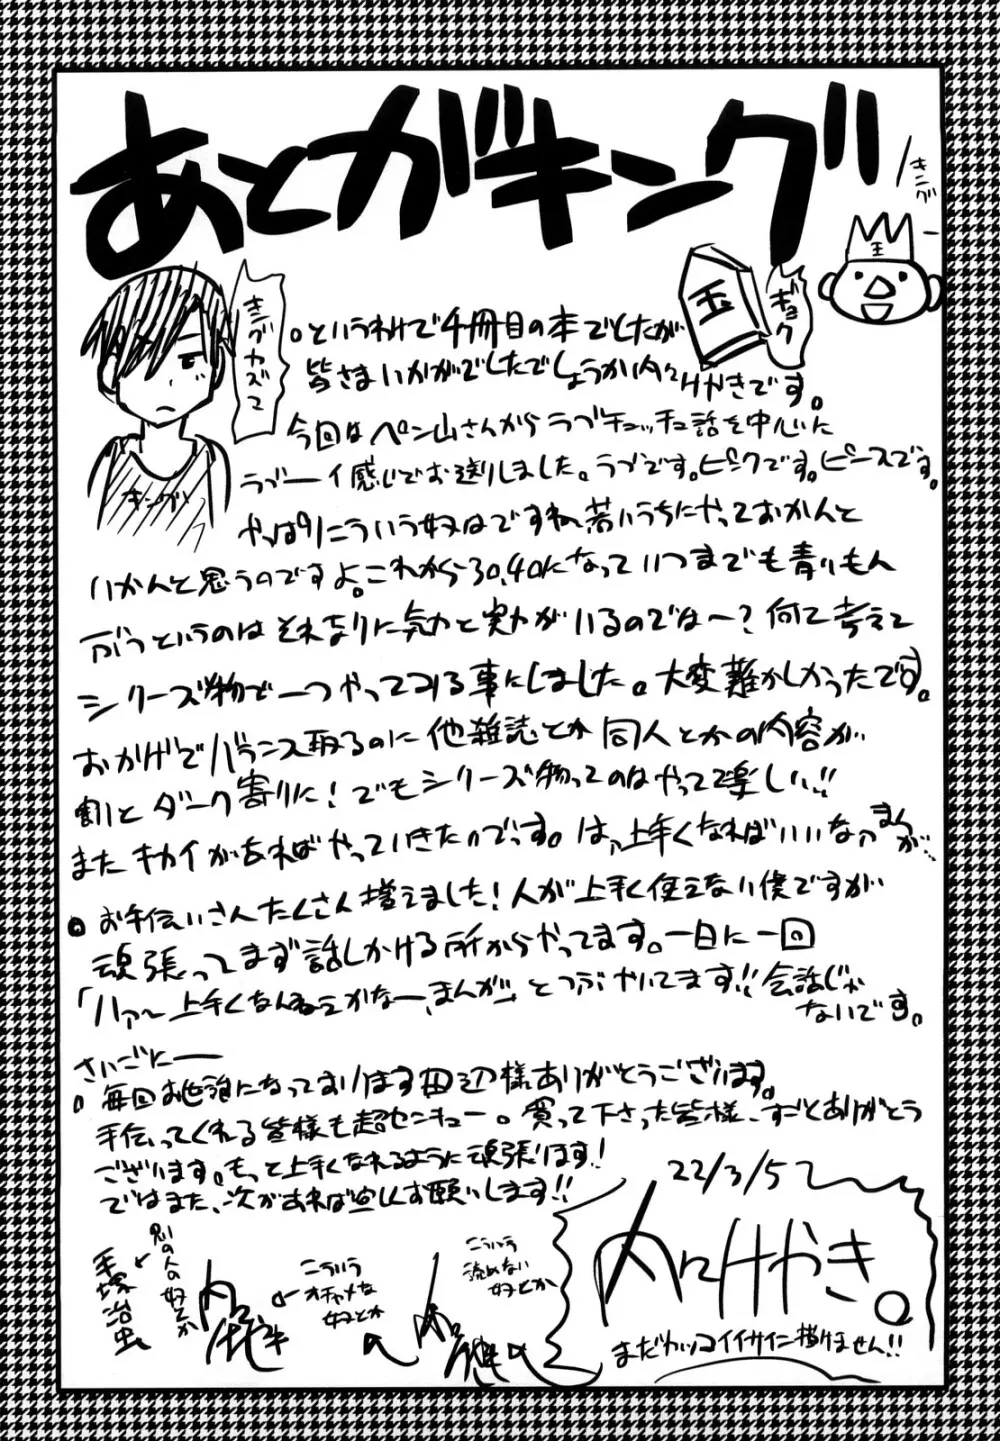 あとがキング
キング
王
玉
ギョク
キングカズで
キング
。というわけで4冊目の本でしたが
皆さまいかがでしたでしょうか内々けやきです。
今回はペン山さんからラブチュッチュ話を中心に
ラブーイ感じでお送りしました。ラブです。ピンクです。ピースです。
やっぱりこういう奴はですね若いうちにやっておかんと
いかんと思うのですよ。これから30,40になっていつまでも青いもん
ぶつというのはそれなりに気力と実力がいるのでは〜?何て考えて
シリーズ物で一つやってみる事にしました。大変難かしかったです。
おかげでバランス取るのに他雑誌とか同人とかの内容が
割とダーク寄りに!でもシリーズ物ってのはやってて楽しい!!
またキカイがあればやっていきたいのです。はぁ上手くなればいいなァまんが…
。お手伝いさんたくさん増えました!人が上手く使えない僕ですが
頑張ってまず話しかける所からやってます。一日に一回
「ハァ〜上手くなんねぇかなー、まんが」とつぶやいてます!!会話じゃ
ないです。
さいごにー
。毎回お世話になっております田辺様ありがとうございます。
手伝ってくれる皆様も超センキュー。買って下さった皆様、すごとありがとう
ございます。もっと上手くなれるように頑張ります!
ではまた、次があれば宜しくお願いします!!
22/3/5
内々けやき。
まだカッコイイサイン描けません!!
こういう
読めない
奴とか
こういう
オチャメな
奴とか
別の人の奴とか
手塚治虫